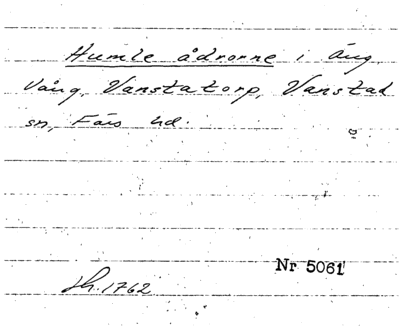 Humle ådrorne i Äng
Vång, Vanstatorp, Vanstad
sn, Färs hd.
Nr 5061
Sk. 1762